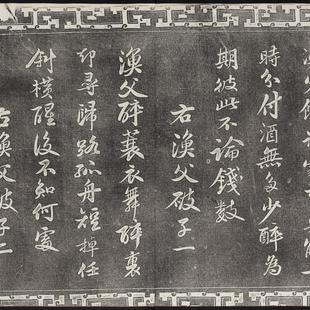 時分付酒無多少醉為
期彼此不論錢數
右漁父破子一
漁父醉蓑衣舞醉裏
却尋歸路孤舟短棹任
斜橫醒後不知何處
右漁父破子二